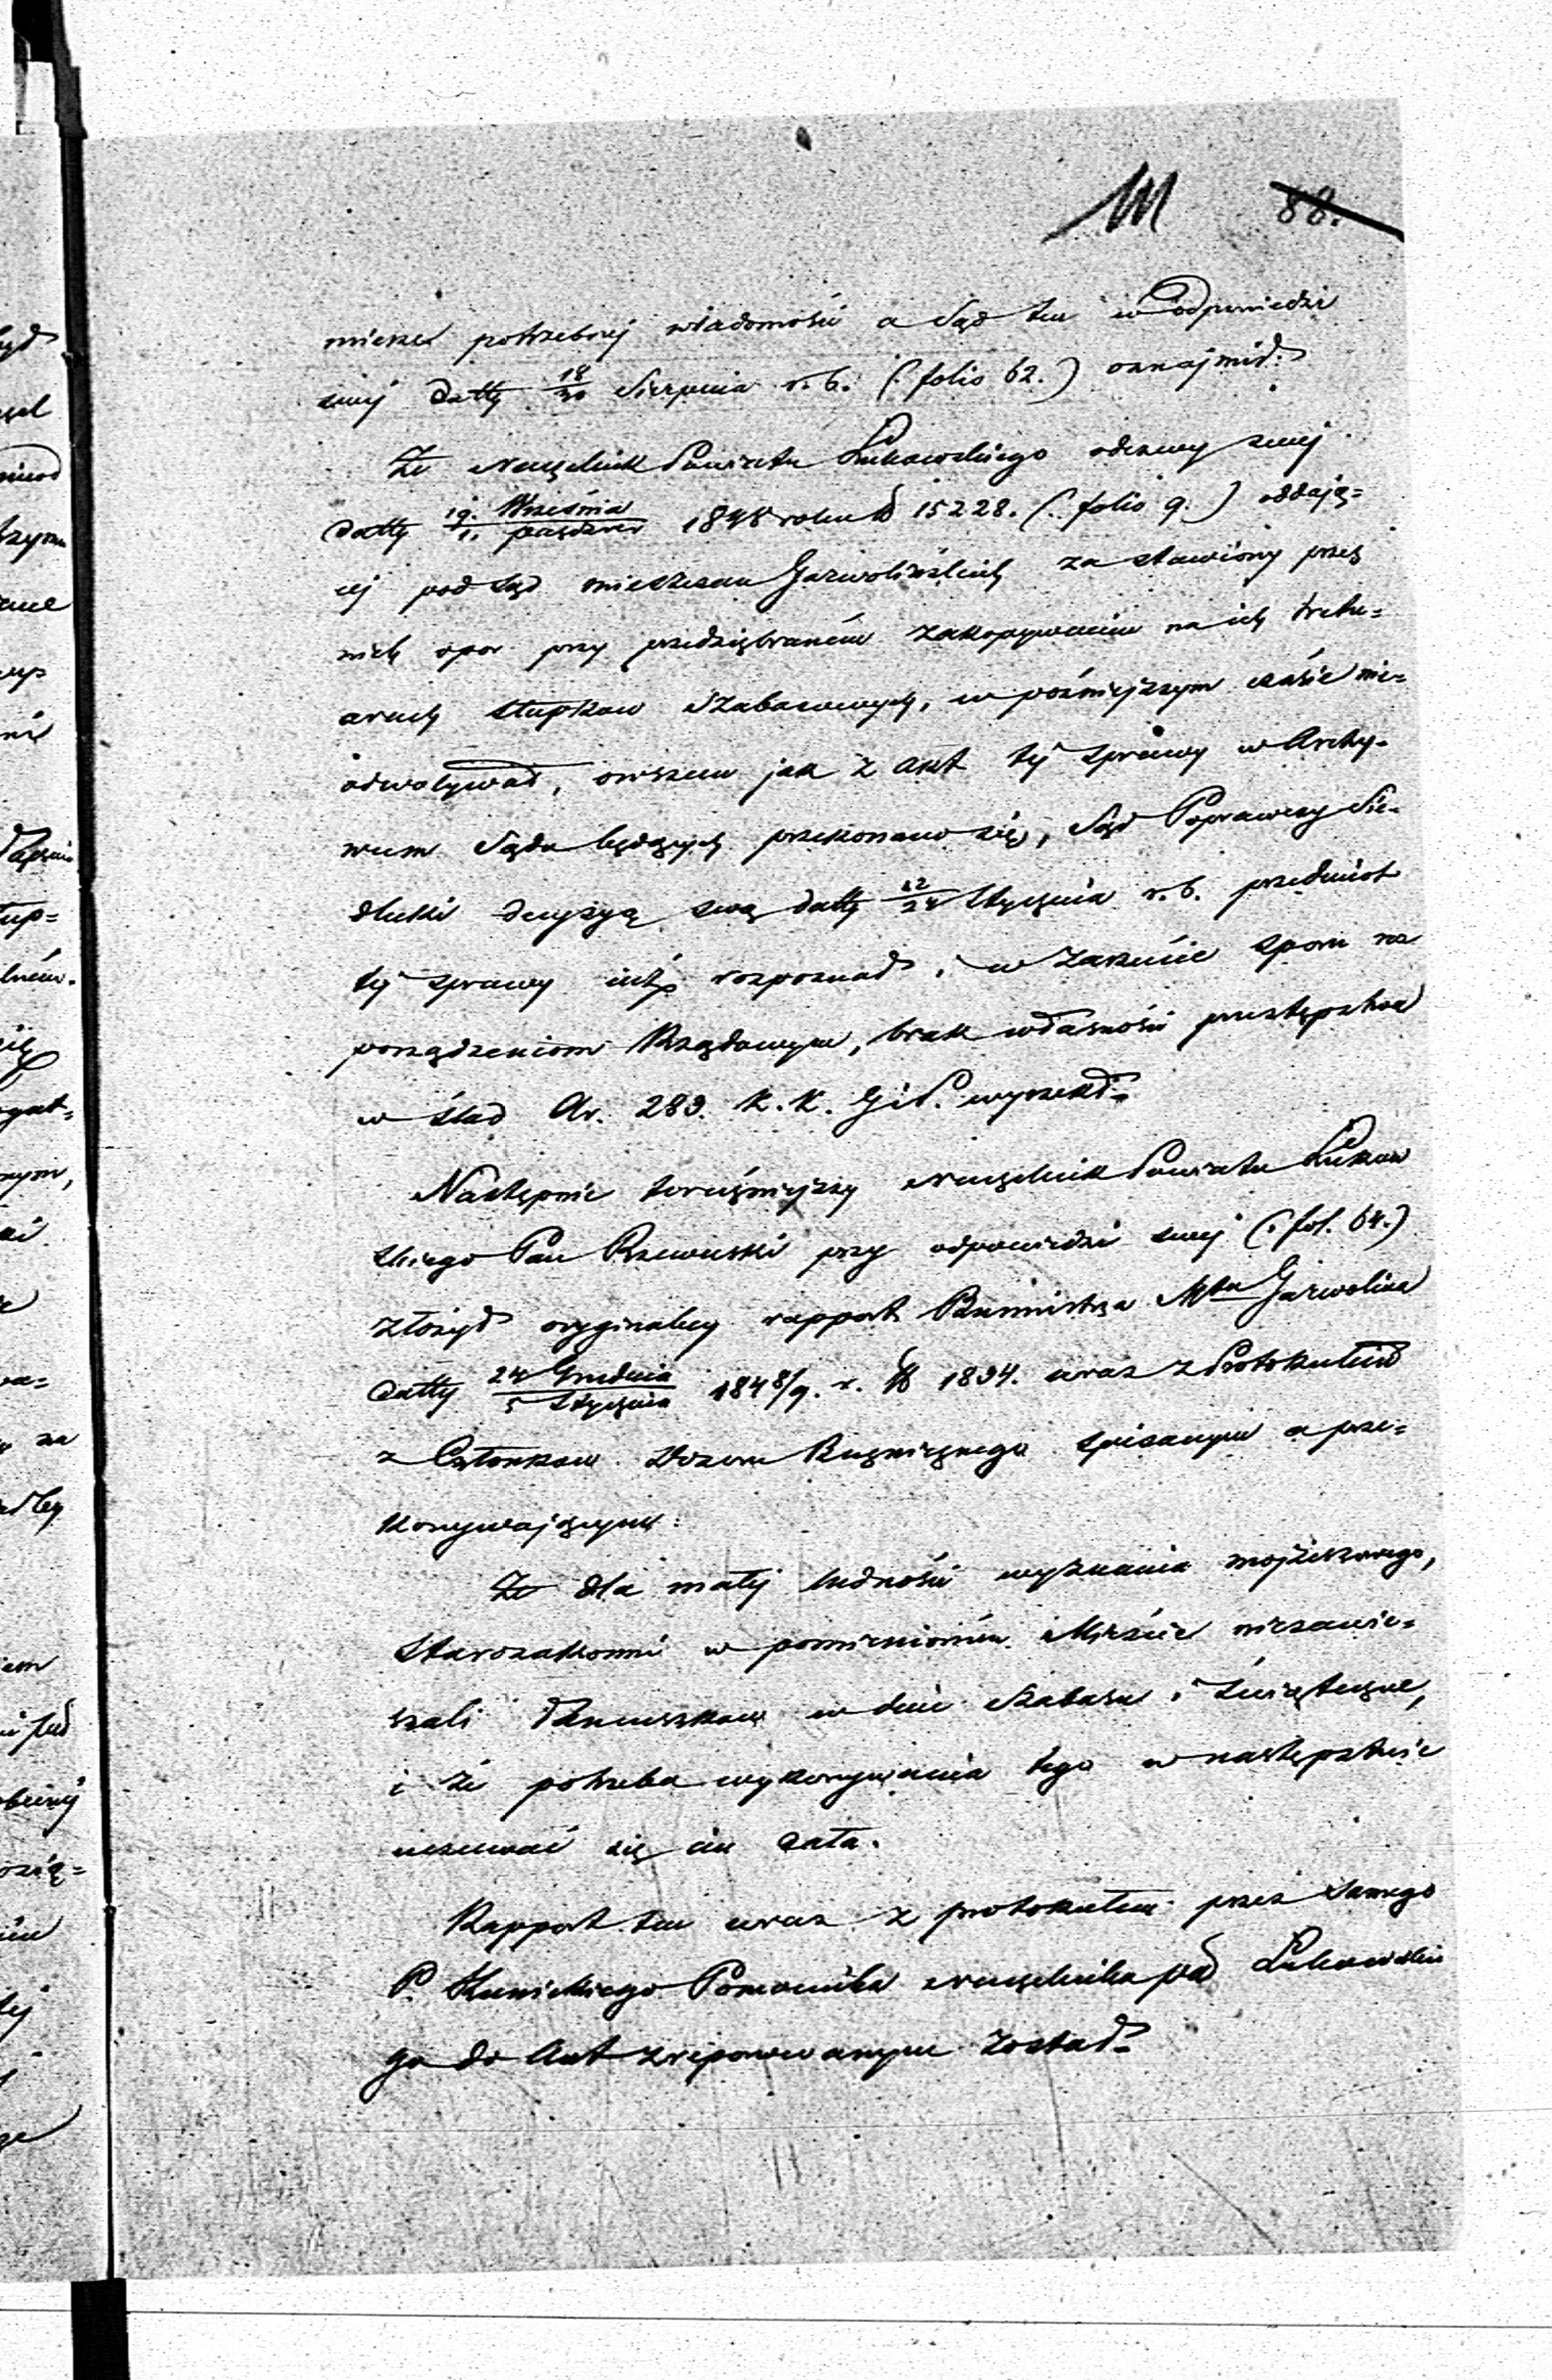 111 88.
potrzebnej wiadomości a Sąd ten w odpowiedzi
swej datty 18/30 Sierpnia r. b. (: folio 62.) oznajmił:
Że Naczelnik Powiatu Łukowskiego odezwy swej
datty 19. Września/1. pazdzier 1848 roku № 15228. (: folio 9.) oddają=
cej pod Sąd mieszczan Garwolińskich za stawiony przez
nich opor przy przedsięwraném zakopywaniu na ich tretu=
arach słupkow Szabasowych, w poźniejszym czasie nie=
odwoływał, owszem jak z akt tej sprawy w Archy-
wum Sądu będących przekonano się, Sąd Poprawczy Sie-
dlecki decyzyą swą datty 12/24 Stycznia r. b. przedmiot
tej sprawy już rozpoznał, i w zarzucie oporu roz
porządzeniom Rządowym, brak własności przestępstwa
w ślad Ar. 283. K. K. G i P. wyrzekł.
Następnie teraźniejszy Naczelnik Powiatu Łukow
skiego Pan Rzewuski przy odpowiedzi swej (: fol. 64.)
złożył oryginalny rapport Burmistrza Mta Garwolina
datty 24 Grudnia/5 Stycznia 1848/9. r. № 1834. wraz z Protokułem
z Członkow Dozoru Bużniczego spisanym a prze=
konywającym:
Że dla małej ludności wyznania mojżeszowego,
Starozakonni w pomienioném Mieście niezawie=
szali łancuszkow w dnie Szabasu i Świąteczne,
i że potrzeba wykonywania tego w następstwie
usuwać się im zdała.
Rapport ten wraz z protokułem przez samego
P. Kunickiego Pomocnika Naczelnika pow Łukowskie
go do Akt zreponowanym został.